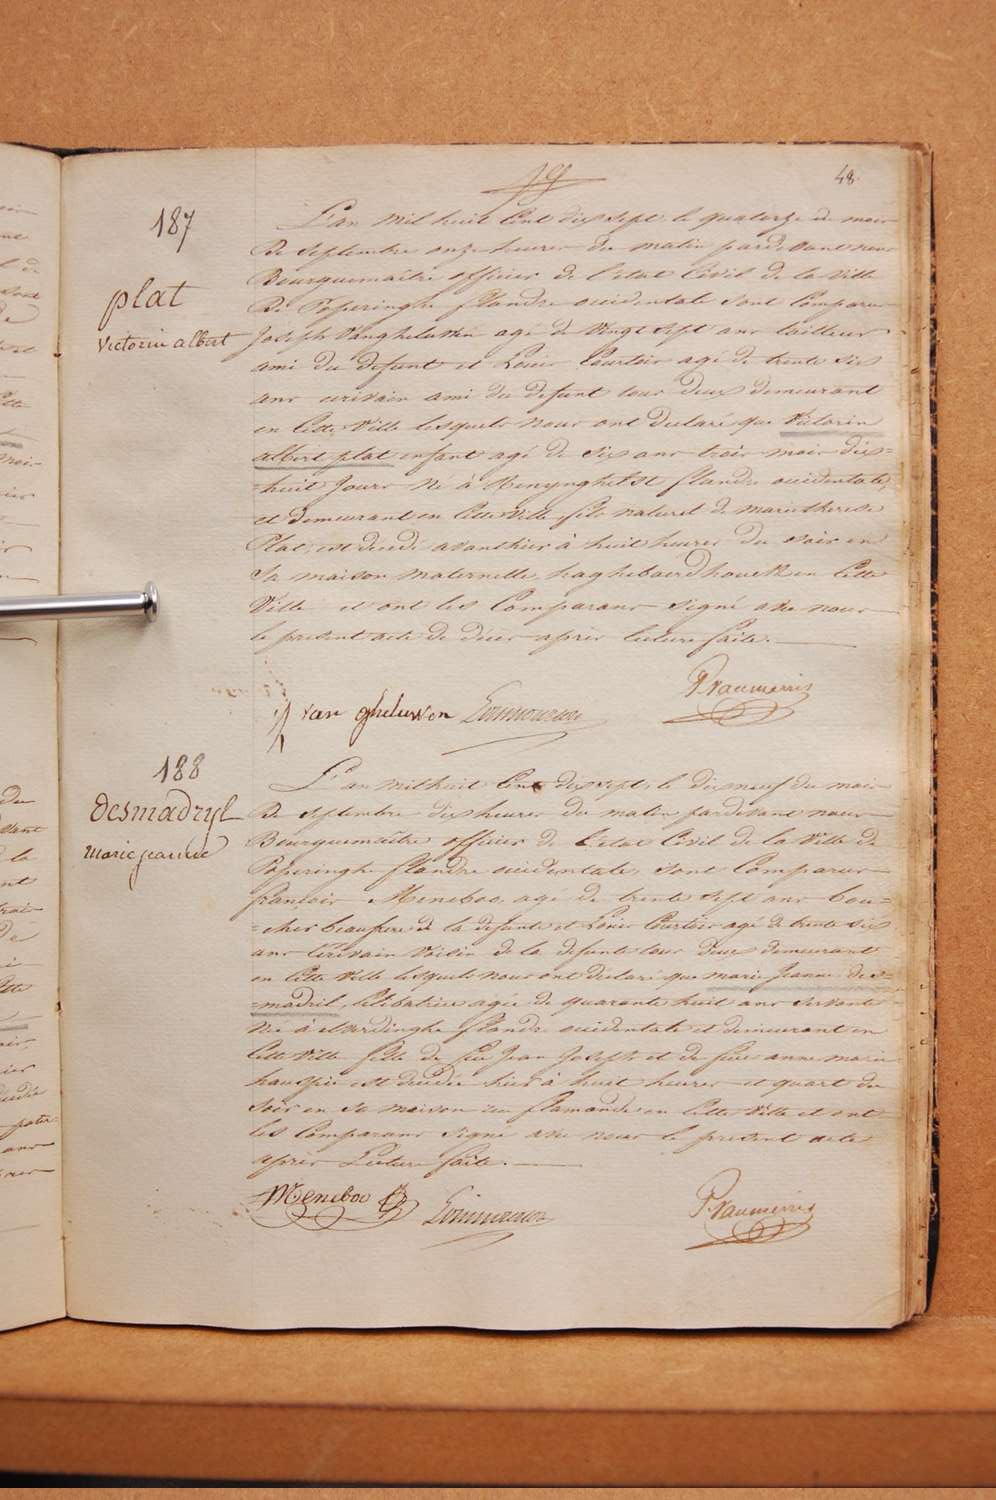 48.
187
plat
victorin albert
L'an mil huit cent dix sept, le quatorze du mois
De Septembre onze heures du matin pardevant nous
Bourguemaître officier de l'etat Civil de la ville
De Poperinghe flandre occidentale sont Comparus
Joseph Vangheluwen agé de vingt sept ans tailleur
ami du defunt et Louis Courtois agé de trente six
ans ecrivain ami du defunt tous deux demeurant
en Cette Ville lesquels nous ont declaré que victorin
albert plat enfant agé de six ans trois mois dix-
-huit jours né à Renynghelst flandre occidentale,
et demeurant en Cette Ville, fils naturel de marie therese
Plat, est decedé avanthier à huit heures du soir en
Sa maison maternelle, en Cette
Ville et ont les Comparans signé avec nous
le present acte de décès après lecture faite.
van gheluwen
188
Desmadryl
Marie jeanne
L'an mil huit Cent dix sept, le dix neuf du mois
De Septembre dix heures du matin pardevant nous
Bourguemaître officier de l'etat Civil de la Ville de
Poperinghe flandre occidentale, sont Comparus
francois Meneboo agé de trente sept ans bou-
-cher beaufrere de la defunte et Louis Courtois agé de trente six
ans ecrivain voisin de la defunte tous deux demeurant
en Cette Ville lesquels nous ont declaré que marie Jeanne des-
-madril, celibatrice agée de quarante huit ans servante
née à elverdinghe flandre occidentale et demeurant en
Cette Ville fille de feu Jean Joseph et de feue anne marie
hauspie est decedée hier à huit heures et quart du
soir en Sa maison rue flamande en Cette Ville et ont
les Comparans signé avec nous le present acte
après Lecture faite.
Meneboo